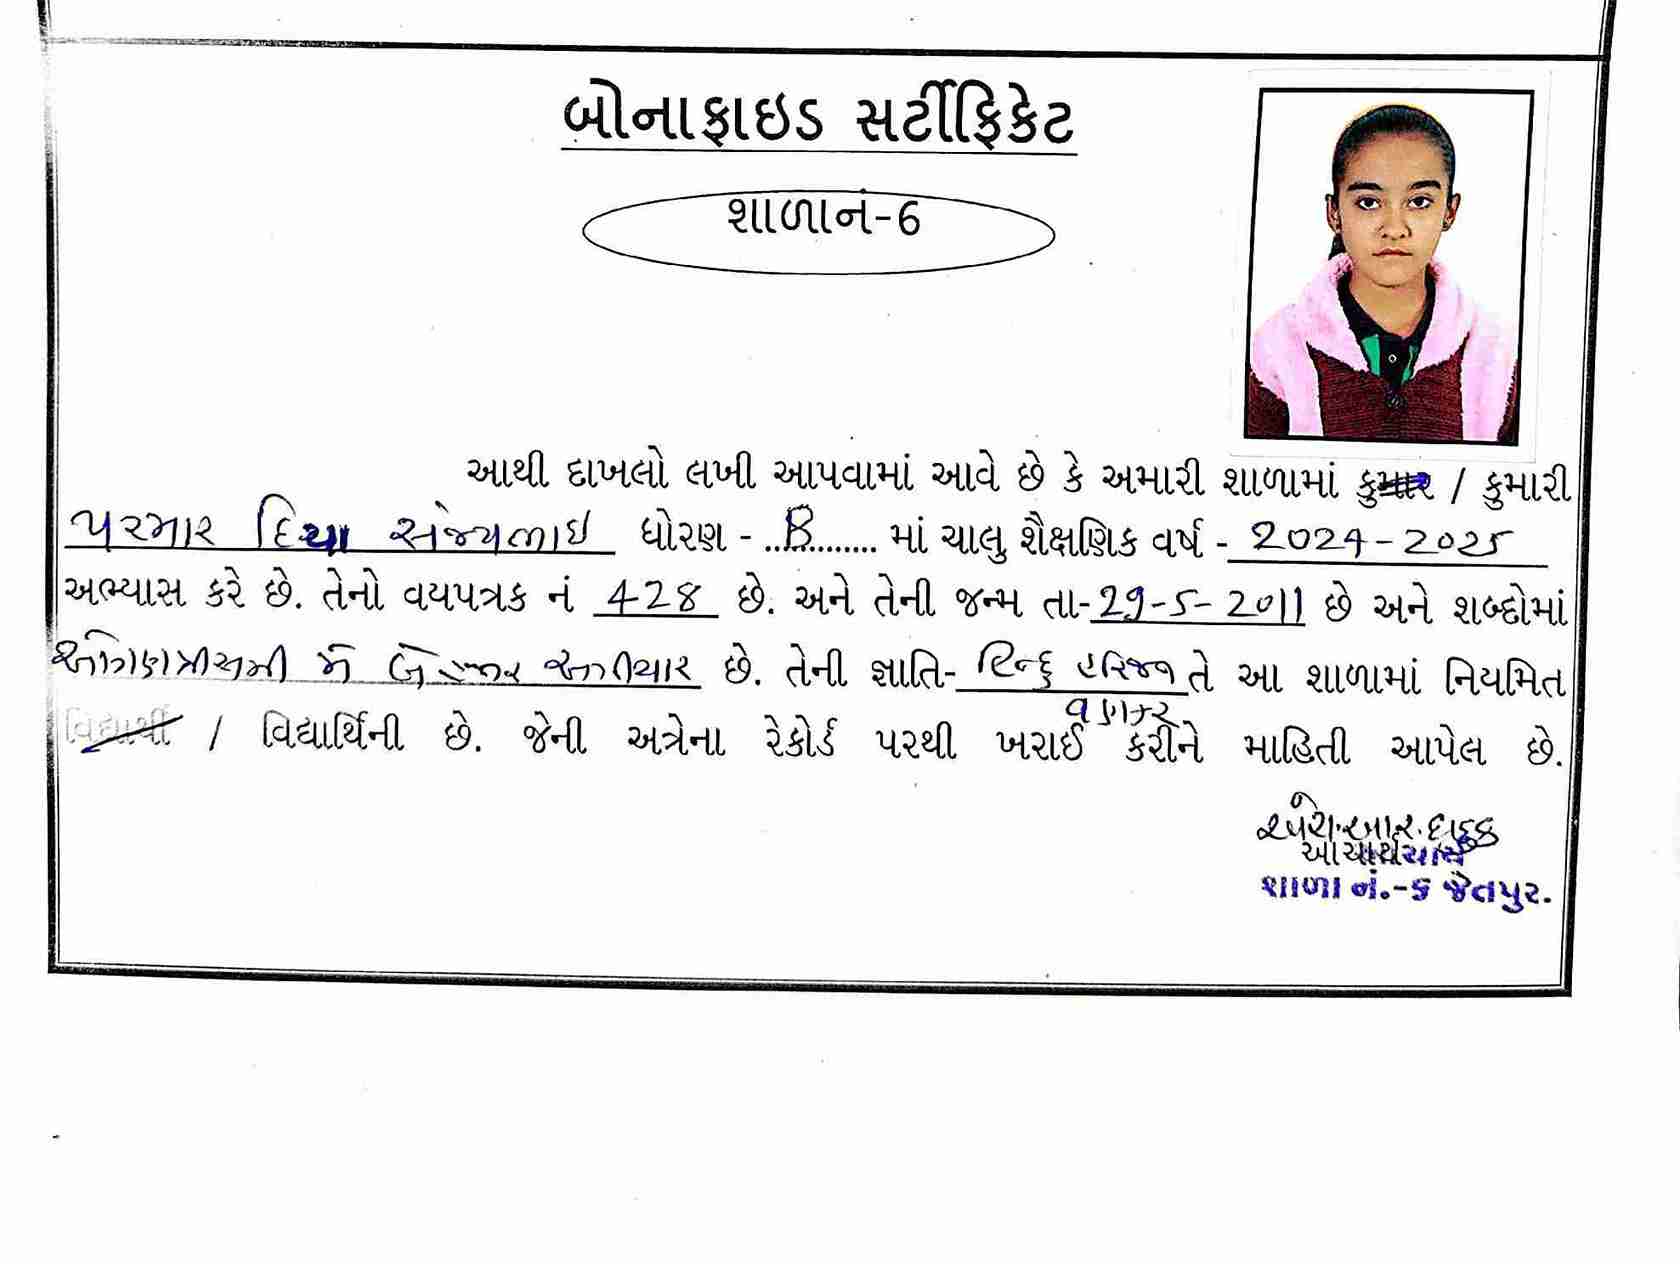 બોનાફાઇડ સર્ટીફિકેટ
શાળાનં-6
આથી દાખલો લખી આપવામાં આવે છે કે અમારી શાળામાં કુમાર / કુમારી
પરમાર દિયા સંજયભાઇ ધોરણ - ............ માં ચાલુ શૈક્ષણિક વર્ષ - 2024-2025
અભ્યાસ કરે છે. તેનો વયપત્રક નં 428 છે. અને તેની જન્મ તા-29-5-2011 છે અને શબ્દોમાં
ઓગણત્રીસમી મે બે હજાર અગીયાર છે. તેની જ્ઞાતિ- હિન્દુ હરિજન તે આ શાળામાં નિયમિત
વણકર
વિદ્યાર્થી / વિદ્યાર્થિની છે. જેની અત્રેના રેકોર્ડ પરથી ખરાઈ કરીને માહિતી આપેલ છે.
આચાર્ય
શાળા નં.-૬ જેતપુર.